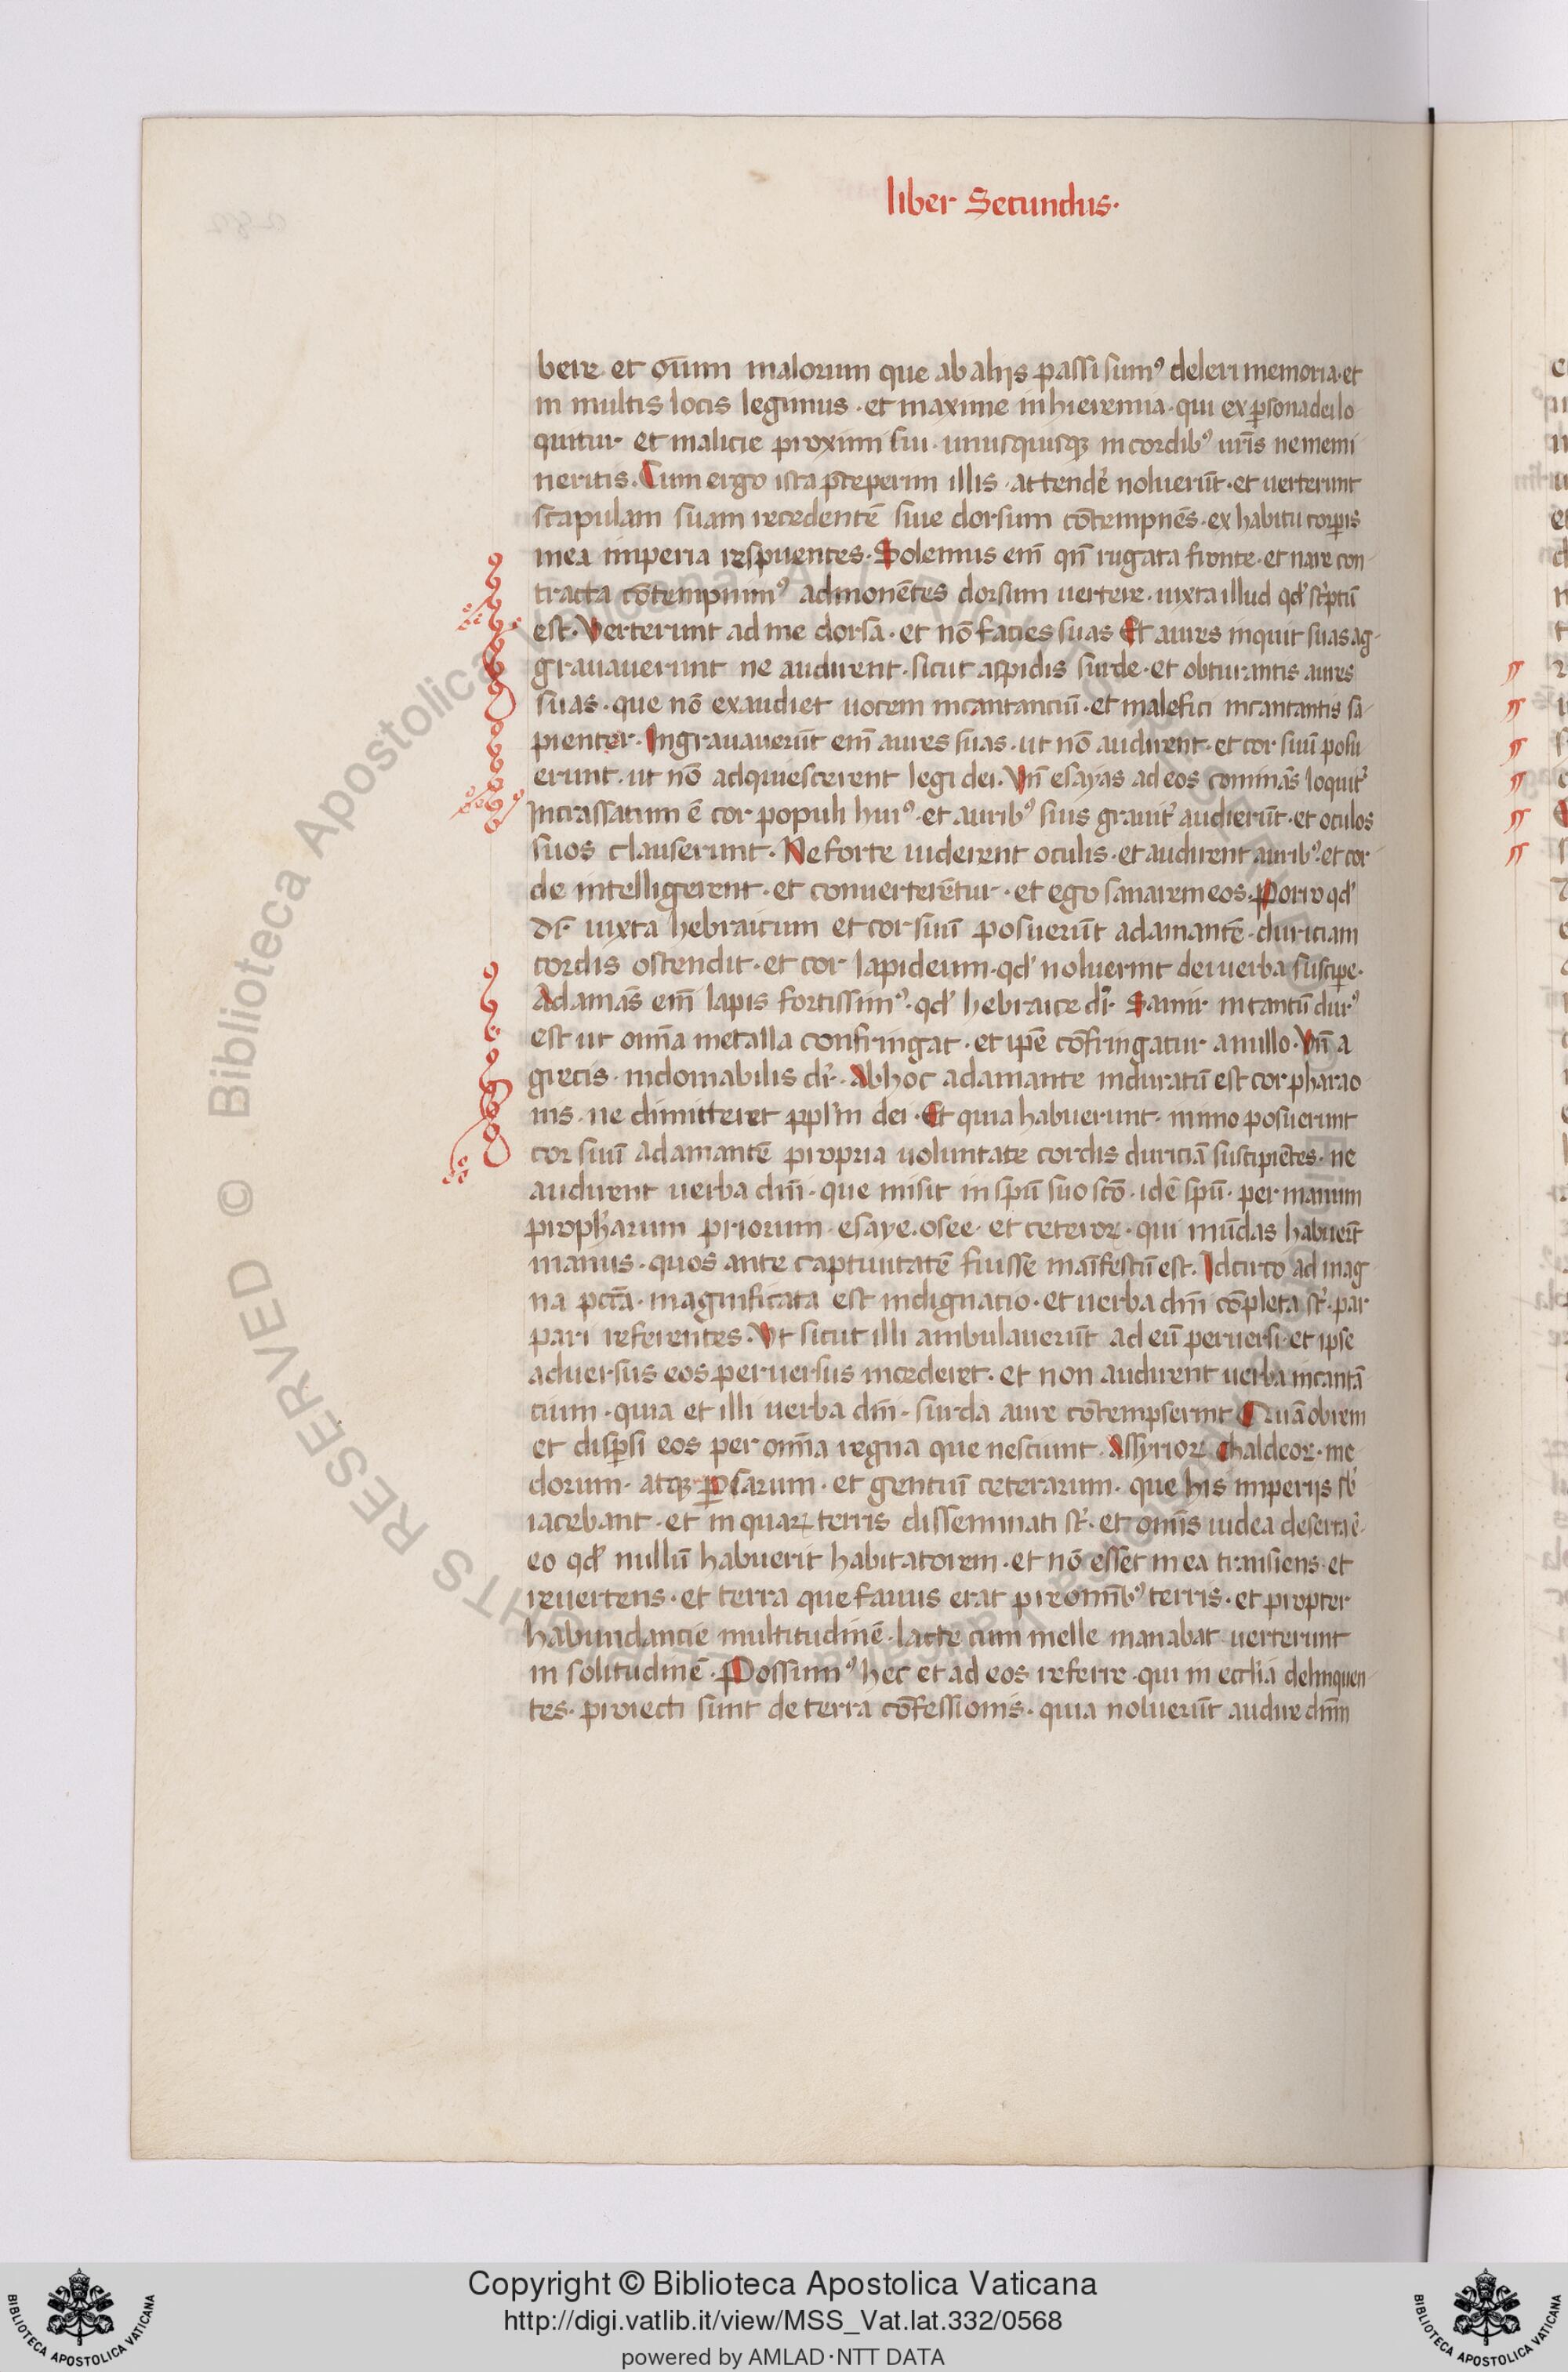 liber Secundus·
bere et oīum malorum que ab alijs passi sumꝰ deleri memoria·et
in multis locis legimus·et maxime in hieremia·qui ex ꝑsona dei lo
quitur et malicie proximi sui·unusquisqꝫ in cordibꝰ uris̄ ne memi
neritis. Cum ergo ista p̄ceperim illis·attende᷑ noluerūt·et uerterunt
scapulam suam recedentē siue dorsum cōtempnēs·ex habitu corꝑis
mea imperia respuentes. Solemus em̄ qn̄ rugata fronte·et nare con-
tracta cōtempnimꝰ admonētes dorsum uertere·iuxta illud qd' sc᷑ptū
est. Verterunt ad me dorsa·et nō facies suas Et aures inquit suas ag-
grauauerunt ne audirent·sicut aspidis surde·et obturantis aures
suas·que nō exaudiet uocem incantanciū·et malefici incantantis sa-
pienter. Ingrauauerūt em̄ aures suas·ut nō audirent·et cor suū posu
erunt·ut nō adquiescerent legi dei. Vn̄ esayas ad eos cominās loquit᷑
Incrassatum ē cor populi huiꝰ·et auribꝰ suis grauit᷑ audierūt·et oculos
suos clauserunt. Ne forte uiderent oculis·et audirent auribꝰ·et cor-
de intelligerent·et conuerterētur·et ego sanarem eos. Porro qd'
dr̄ iuxta hebraicum et cor suū posuerūt adamantē·duriciam
cordis ostendit·et cor lapideum·qd' noluerint dei uerba suscipe·
Adamās em̄ lapis fortissimꝰ·qd' hebraice dr̄ Samir in tantū durꝰ
est ut omīa metalla confringat·et ipē cōfringatur a nullo·Vn̄ a
grecis·indomabilis dr̄·Ab hoc adamante induratū est cor pharao
nis·ne dimitteret ppl'm dei·Et quia habuerunt·immo posuerunt
cor suū adamantē propria uoluntate cordis duriciā suscipiētes·ne
audirent uerba dnī·que misit in spū suo scō·idē spū·per manum
proph'arum priorum·esaye·osee·et ceteroꝝ·qui mūdas habuerūt
manus·quos ante captiuitatē fuisse manīfestū est. Idcirco ad mag
na pctā·magnificata est indignacio·et uerba dnī cōpleta st᷑·par
pari referentes. Vt sicut illi ambulauerūt ad eū peruersi·et ipse
aduersus eos peruersus incederet·et non audirent uerba incantā
cium·quia et illi uerba dnī·surda aure cōtempserint Quā ob rem
et disꝑsi eos per omīa regna que nesciunt·Assyrioꝝ Chaldeoꝝ·me
dorum·atqꝫ Ꝑsarum·et gentiū ceterarum·que his imperijs sb᷑
iacebant·et in quaꝝ terris disseminati st᷑·et omīs iudea deserta ē·
eo qd' nullū habuerit habitatorem·et nō esset in ea transiens·et
reuertens·et terra que fauus erat pre omībꝰ terris·et propter
habundancie multitudinē·lacte cum melle manabat uerterunt
in solitudinē·Possumꝰ hec et ad eos referre·qui in eccl'ia delinquen-
tes·proiecti sunt de terra cōfessionis·quia noluerūt audire dnm̄
© Biblioteca Apostolica Vaticana
RIGHTS RESERVED
Copyright © Biblioteca Apostolica Vaticana
http://digi.vatlib.it/view/MSS_Vat.lat.332/0568
powered by AMLAD·NTT DATA
BIBLIOTECA APOSTOLICA VATICANA
BIBLIOTECA APOSTOLICA VATICANA